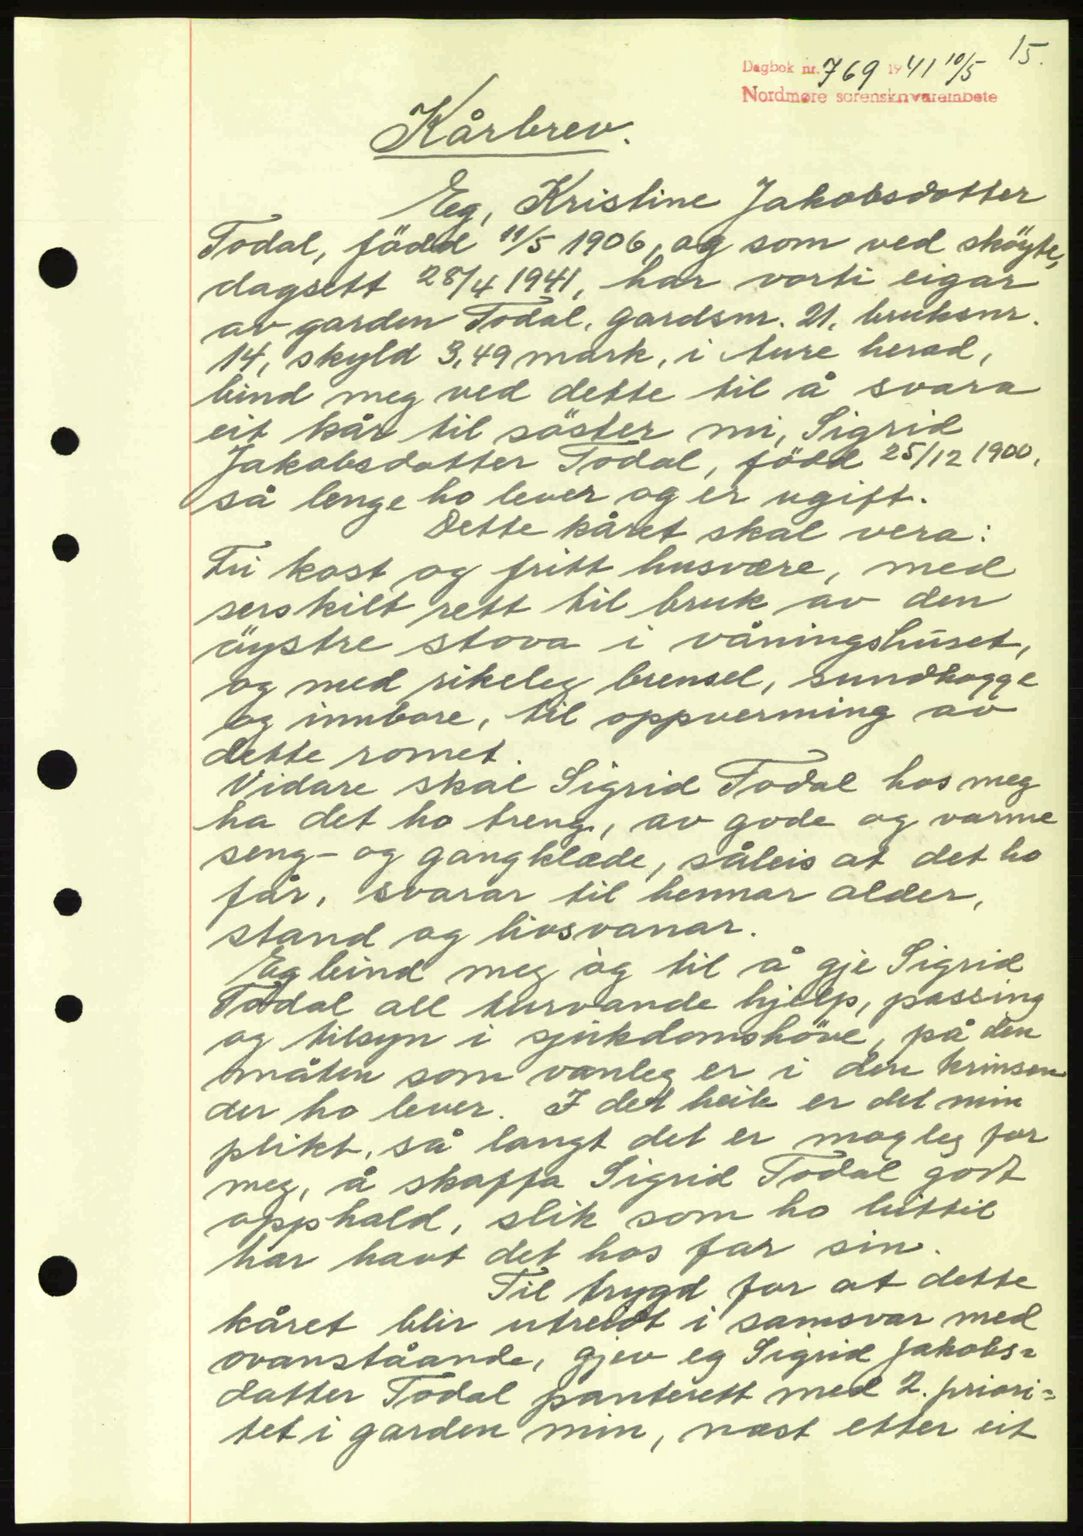 15.
Dagbok nr. 769 1941 10/5
Nordmøre sorenskrivarembete
Kårbrev.
Eg, Kristine Jakobsdotter
Todal, född 11/5 1906, og som ved sköyte,
dagsett 28/4 1941, har vorti eigar
av garden Todal, gardsnr. 21, bruksnr.
14, skyld 3,49 mark, i Aure herad,
bind meg ved dette til å svara
eit kår til söster mi, Sigrid
Jakobsdotter Todal, född 25/12 1900,
så lenge ho lever og er ugift.
Dette kåret skal vera:
Fri kost og fritt husvære, med
serskilt rett til bruk av den
öystre stova i våningshuset,
og med rikeleg brensel, sundhogge
og innbore, til oppverming av
dette romet.
Vidare skal Sigrid Todal hos meg
ha det ho treng, av gode og varme
seng- og gangklæde, såleis at det ho
får, svarar til hennar alder,
stand og livsvanar.
Eg bind meg og til å gje Sigrid
Todal all turvande hjelp, passing
og tilsyn i sjukdomshöve, på den
måten som vanleg er i den krinsen
der ho lever. I det heile er det min
plikt, så langt det er mogleg for
meg, å skaffa Sigrid Todal godt
opphald, slik som ho hittil
har havt det hos far sin.
Til trygd for at dette
kåret blir utreidt i samsvar med
ovanståande, gjev eg Sigrid Jakobs=
dotter Todal panterett med 2. priori=
tet i garden min, næst etter eit